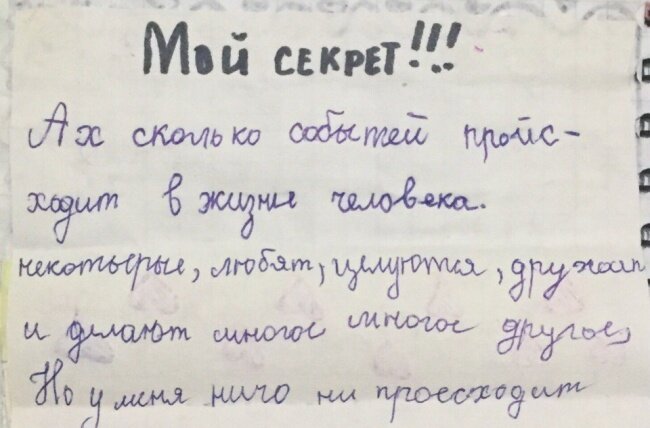 Мой СЕКРЕТ!!!
Ах сколько событей пройс-
ходит в жизни человека.
некотьерые, любят, целуются, дружат
и делают многое многое другое,
Но у меня ничо ни проесходит